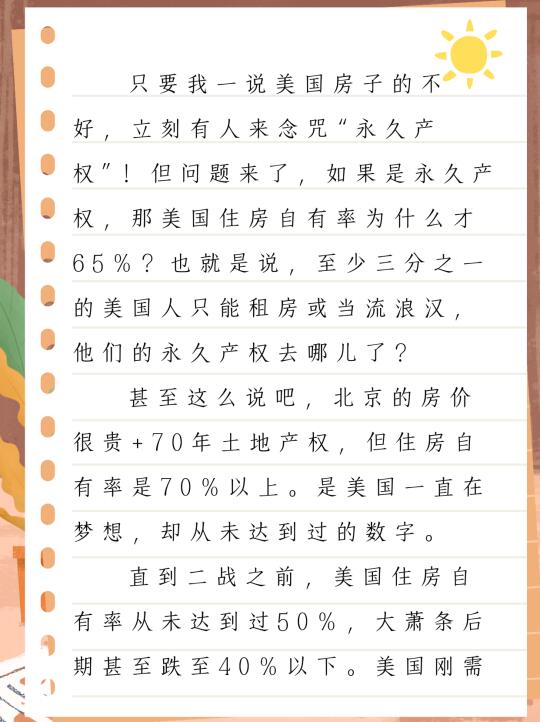 只要我一说美国房子的不
好，立刻有人来念咒“永久产
权”！但问题来了，如果是永久产
权，那美国住房自有率为什么才
65%？也就是说，至少三分之一
的美国人只能租房或当流浪汉，
他们的永久产权去哪儿了？
甚至这么说吧，北京的房价
很贵+70年土地产权，但住房自
有率是70%以上。是美国一直在
梦想，却从未达到过的数字。
直到二战之前，美国住房自
有率从未达到过50%，大萧条后
期甚至跌至40%以下。美国刚需